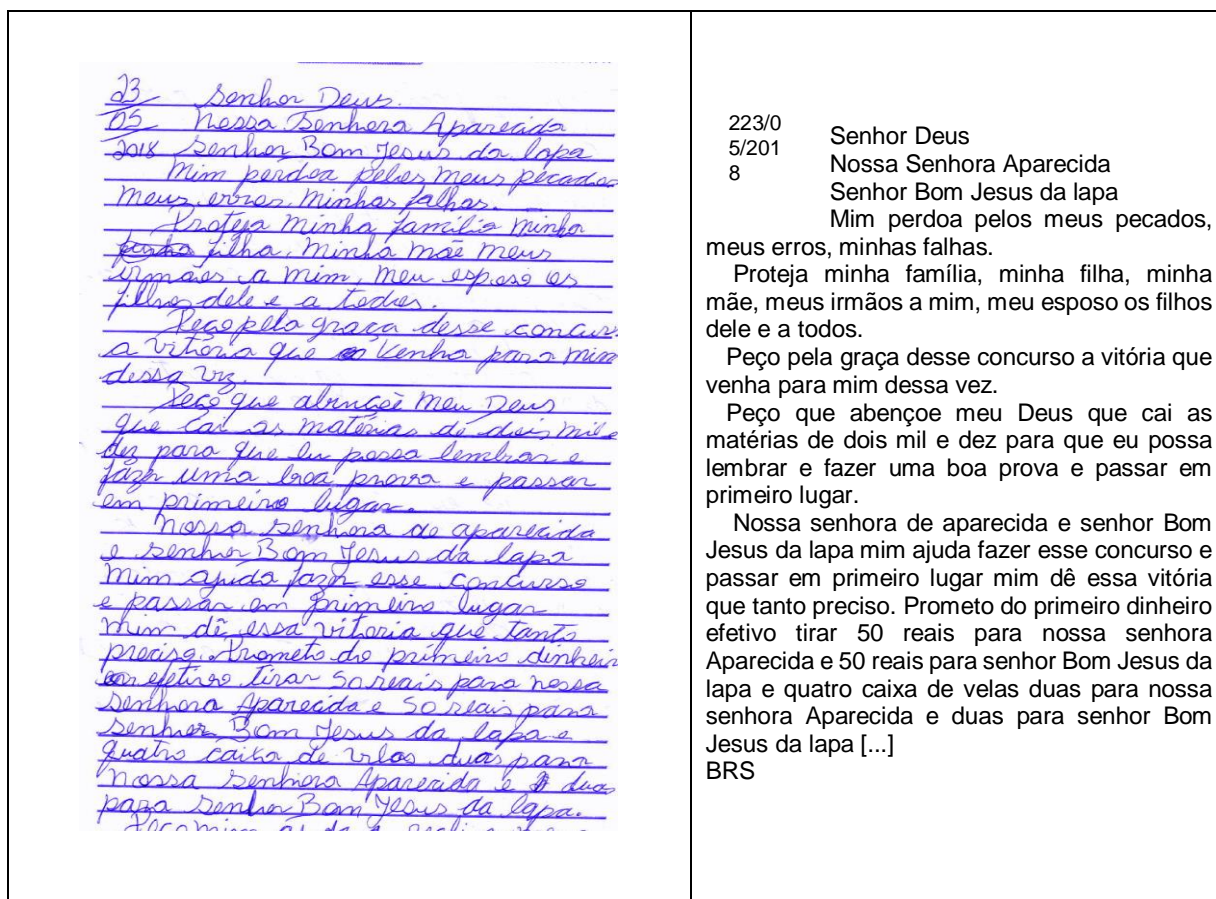 23 Senhor Deus.
05 Nossa Senhora Aparecida
2018 Senhor Bom Jesus da lapa
Mim perdoa pelos meus pecados
meus erros. minhas falhas.
Proteja minha família minha
filha, minha mãe meus
irmãos a mim, meu esposo os
filhos dele e a todos.
Peço pela graça desse concurs
a vitória que venha para mim
dessa vez.
Peço que abençoe meu Deus
que cai as matérias de dois mil e
dez para que eu possa lembrar e
fazer uma boa prova e passar
em primeiro lugar.
Nossa senhora de aparecida
e senhor Bom Jesus da lapa
mim ajuda fazer esse concurso
e passar em primeiro lugar
mim dê essa vitoria que tanto
preciso. Prometo do primeiro dinheir
efetivo tirar 50 reais para nossa
senhora Aparecida e 50 reais para
senhor Bom Jesus da lapa e
quatro caixa de velas duas para
nossa senhora Aparecida e duas
para senhor Bom Jesus da lapa.
223/0
5/201
8
Senhor Deus
Nossa Senhora Aparecida
Senhor Bom Jesus da lapa
Mim perdoa pelos meus pecados,
meus erros, minhas falhas.
Proteja minha família, minha filha, minha
mãe, meus irmãos a mim, meu esposo os filhos
dele e a todos.
Peço pela graça desse concurso a vitória que
venha para mim dessa vez.
Peço que abençoe meu Deus que cai as
matérias de dois mil e dez para que eu possa
lembrar e fazer uma boa prova e passar em
primeiro lugar.
Nossa senhora de aparecida e senhor Bom
Jesus da lapa mim ajuda fazer esse concurso e
passar em primeiro lugar mim dê essa vitória
que tanto preciso. Prometo do primeiro dinheiro
efetivo tirar 50 reais para nossa senhora
Aparecida e 50 reais para senhor Bom Jesus da
lapa e quatro caixa de velas duas para nossa
senhora Aparecida e duas para senhor Bom
Jesus da lapa [...]
BRS